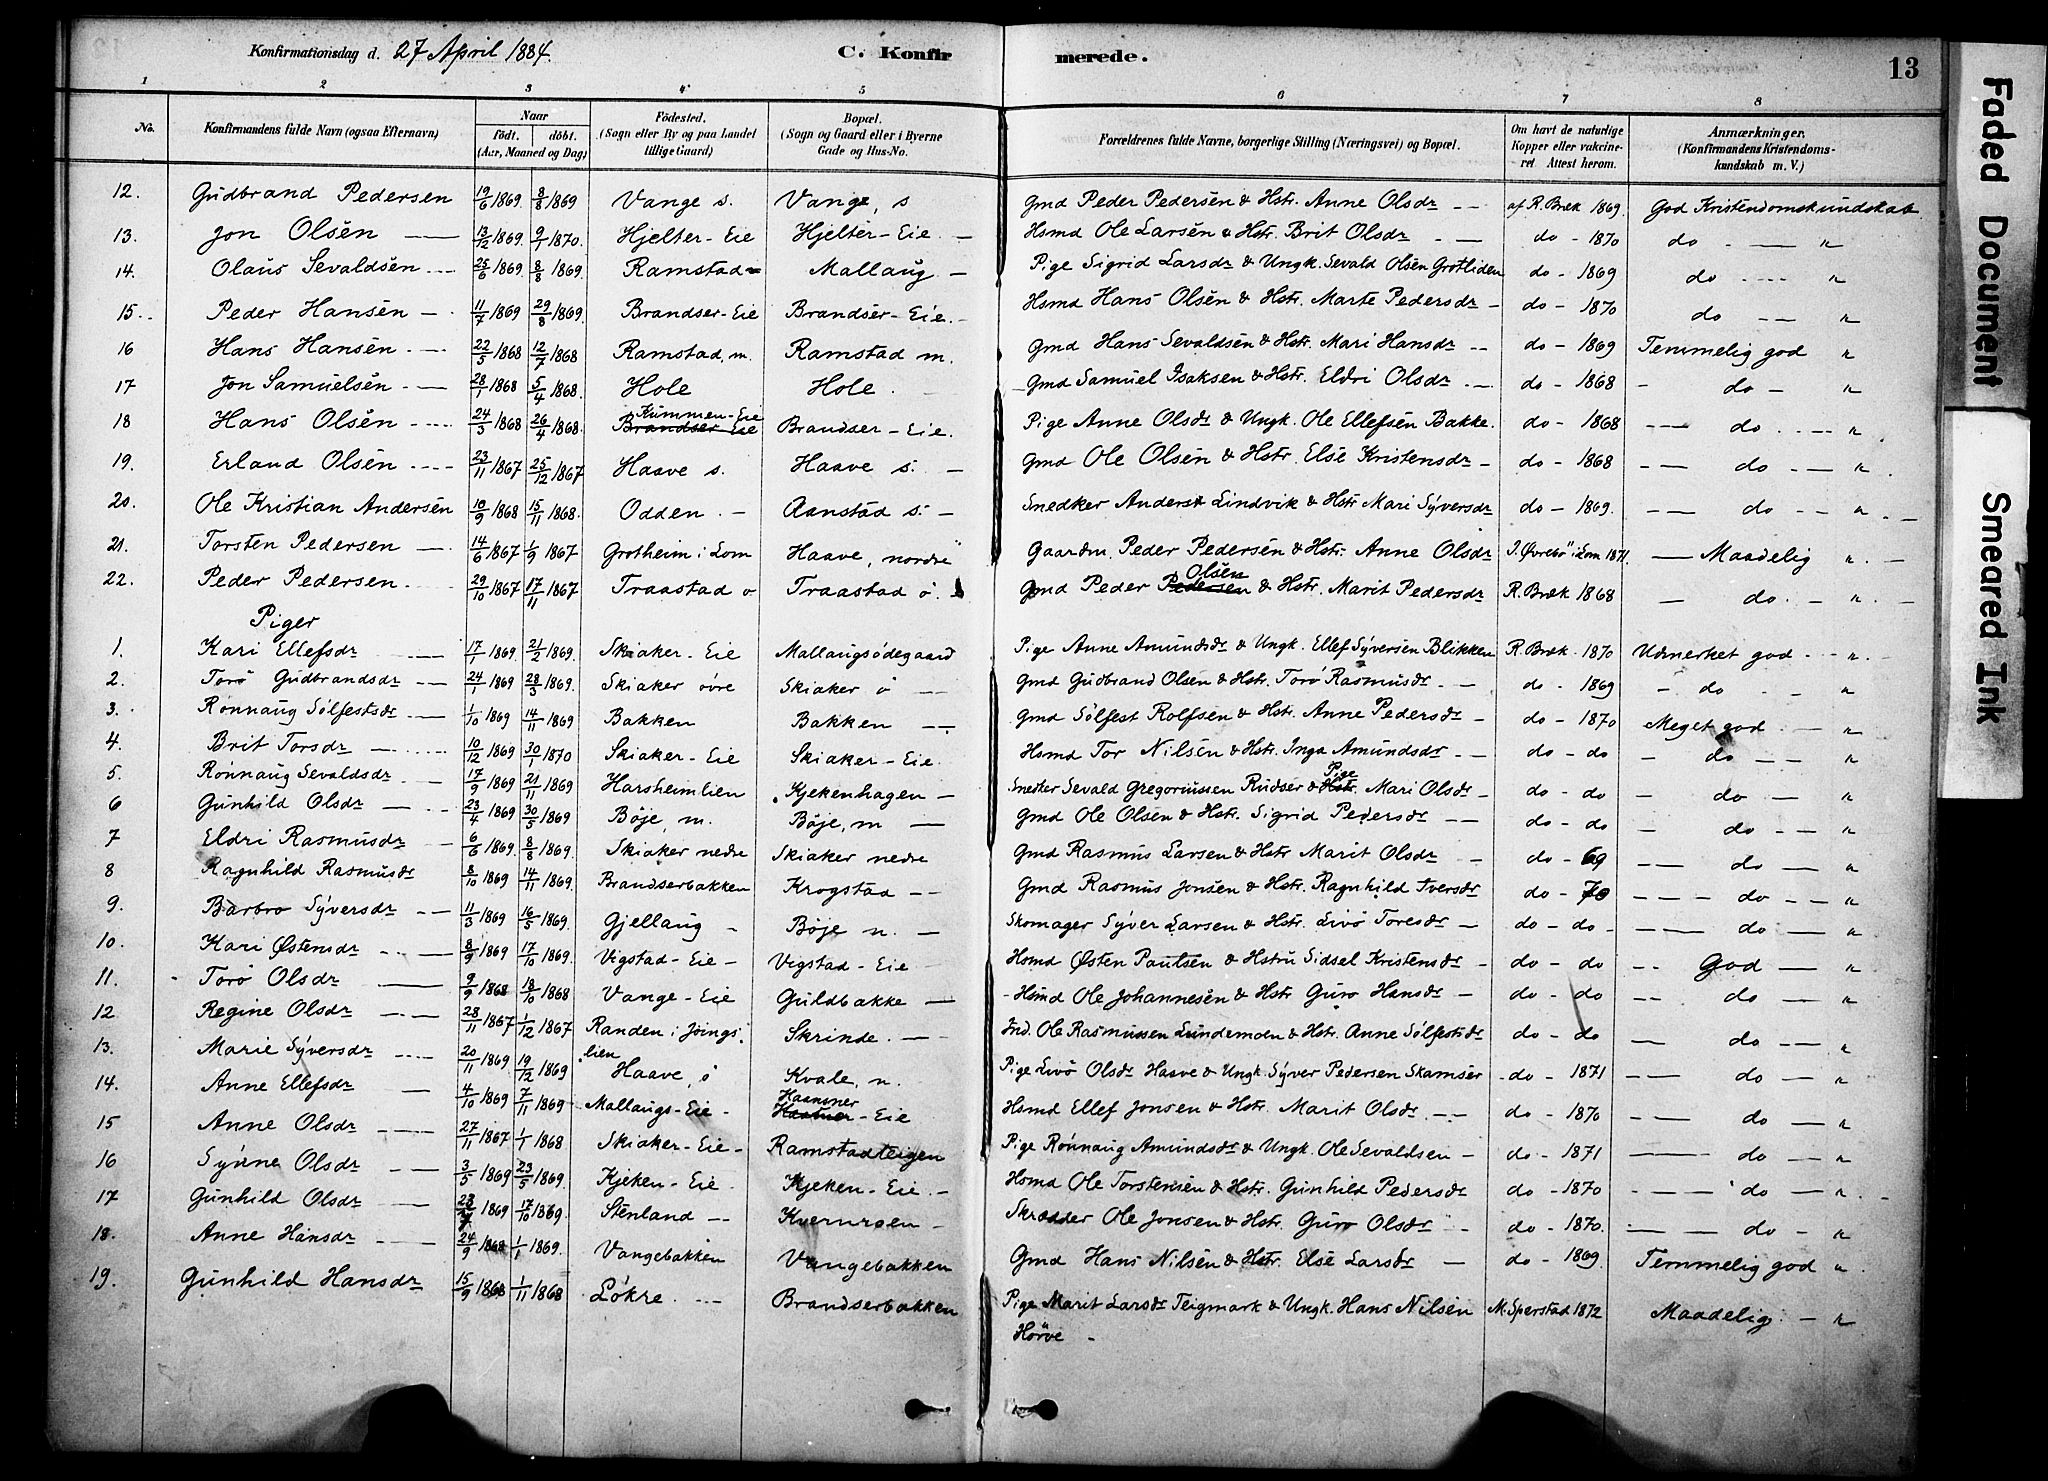 Konfirmationsdag d. 27 April 1884. C. Konfirmerede. 13
1 2 3 4 5 6 7 8
No. Konfirmandens fulde Navn (ogsaa Efternavn) Naar født. døbt. (Aar, Maaned og Dag) Fødested. (Sogn eller By og paa Landet tillige Gaard) Bopæl. (Sogn og Gaard eller i Byerne Gade og Hus-No. Forældrenes fulde Navne, borgerlige Stilling (Næringsvei) og Bopæl. Om havt de naturlige Kopper eller vakcineret. Attest herom. Anmærkninger. (Konfirmandens Kristendomskundskab m. V.)
12. Gudbrand Pedersen 19/6 1869 8/8 1869 Vange s. Vange, s Gmd Peder Pedersen & Hstr. Anne Olsdr — af R. Bræk 1869. God Kristendomskundskab
13. Jon Olsen — 13/12 1869 9/1 1870. Hjelter-Eie Hjelter-Eie. — Hsmd Ole Larsen & Hstr. Brit Olsdr — do - 1870 do — "
14. Olaus Sevaldsen 25/6 1869 8/8 1869. Ramstad Mallaug — Pige Sigrid Larsdr & Ungk. Sevald Olsen Grotliden do - 1869 do "
15. Peder Hansen — 11/7 1869 29/8 1869. Brandser-Eie Brandser-Eie. Hsmd Hans Olsen & Hstr. Marte Pedersdr — do - 1870 do — "
16 Hans Hansen 22/5 1868 12/7 1868 Ramstad, m. Ramstad m. Gmd Hans Sevaldsen & Hstr. Mari Hansdr — do - 1869 Temmelig god "
17 Jon Samuelsen 28/1 1868 5/4 1868. Hole Hole. Gmd Samuel Isaksen & Hstr. Eldri Olsdr — do - 1868 - do - "
18 Hans Olsen 24/3 1868 26/4 1868. Kummen-Eie Brandser-Eie Brandser-Eie. Pige Anne Olsdr & Ungk. Ole Ellefsen Bakke. do - 1868 — do "
19. Erland Olsen 23/11 1867 25/12 1867 Haave s. Haave s. — Gmd Ole Olsen & Hstr. Else Kristensdr — do - 1868 — do — "
20. Ole Kristian Andersen 10/9 1868 15/11 1868. Odden. — Aanstad s. — Snedker Anders Lindvik & Hstr Mari Syversdr do - 1869. — do — "
21. Torsten Pedersen — 14/6 1867 1/9 1867 Grotheim i Lom Haave, nordre Gaardm. Peder Pedersen & Hstr. Anne Olsdr J. Øvrebø i Lom 1871. — Maadelig "
22. Peder Pedersen. 29/10 1867 17/11 1867 Traastad ø Traastad ø. Gmd Peder Pedersen Olsen & Hstr. Marit Pedersdr R. Bræk 1868 — do. — "
Piger
1. Kari Ellefsdr 17/1 1869. 21/2 1869. Skiaker-Eie Mallaugsødegaard Pige Anne Amundsdr & Ungk. Ellef Syversen Blikken R. Bræk. 1870 Udmerket god "
2. Torø Gudbrandsdr — 24/1 1869 28/3 1869. Skiaker øvre Skiaker ø — Gmd Gudbrand Olsen & Hstr. Torø Rasmusdr. — do - 1869 - do - "
3. Rønnaug Sølfestsdr 1/10 1869 14/11 1869 Bakken Bakken — Gmd Sølfest Rolfsen & Hstr. Anne Pedersdr — do - 1870 Meget god — "
4. Brit Torsdr 10/12 1869 30/1 1870 Skiaker-Eie Skiaker-Eie. Hsmd Tor Nilsen & Hstr. Inga Amundsdr — do - do - do — "
5. Rønnaug Sevaldsdr 17/9 1869 21/11 1869 Harsheimlien Kjekenhagen — Snedker Sevald Gregoriussen Rudser & Hstr. Pige Mari Olsdr - do - do - do — "
6 Gunhild Olsdr — 23/4 1869 30/5 1869 Bøje, m. Bøje, m — Gmd Ole Olsen & Hstr. Sigrid Pedersdr — do - do - do — "
7 Eldri Rasmusdr 6/6 1869 8/8 1869. Skiaker nedre Skiaker nedre Gmd Rasmus Larsen & Hstr Marit Olsdr — do - 69 — do — "
8 Ragnhild Rasmusdr 8/10 1869 14/11 1869. Brandserbakken Krogstad — Gmd Rasmus Jonsen & Hstr. Ragnhild Iversdr do - 70 — do — "
9. Barbro Syversdr — 11/3 1869 16/5 1869. Gjellaug - Bøje n. — Skomager Syver Larsen & Hstr. Livø Toresdr — do - do - — do — "
10. Kari Østensdr 8/9 1869 17/10 1869. Vigstad-Eie - Vigstad-Eie Hsmd Østen Paulsen & Hstru Sidsel Kristensdr - do - do — God — "
11. Torø Olsdr — 9/9 1868 18/10 1868 Vange-Eie Guldbakke — Hsmd Ole Johannesen & Hstr Guro Hansdr — do - do — do — "
12 Regine Olsdr 28/11 1867 1/12 1867 Randen i Jøingslien Skrinde. — Ind. Ole Rasmussen Lundemoen & Hstr. Anne Sølfestsdr do - do — do — "
13. Marie Syversdr 20/11 1869 19/12 1869 Haave, ø Kvale, n. Pige Livø Olsdr Haave & Ungk. Syver Pedersen Skamser do - 1871 — do — "
14. Anne Ellefsdr — 4/10 1869 7/11 1869. Mallaugs-Eie - Haansner-Eie Hsmd Ellef Jonsen & Hstr. Marit Olsdr. — do - 1870 — do — "
15 Anne Olsdr — 27/11 1867 1/1 1868 Skiaker-Eie - Ramstadteigen Pige Rønnaug Amundsdr & Ungk. Ole Sevaldsen — do - 1871 — do — "
16 Synne Olsdr — 3/5 1869 23/5 1869. Kjeken-Eie. Kjeken-Eie. — Hsmd Ole Torstensen & Hstr. Gunhild Pedersdr do - 1870 — do — "
17 Gunhild Olsdr — 1869 17/10 1869 Stenland — Kvernroen - Skrædder Ole Jonsen & Hstr. Guro Olsdr do - 1870. — do — "
18. Anne Hansdr 24/9 1868 1/1 1869. Vangebakken Vangebakken Gmd Hans Nilsen & Hstr. Else Larsdr — do - 1869 Temmelig god "
19. Gunhild Hansdr 15/9 1868 1/11 1868 Løkre. — Brandserbakken Pige Marit Larsdr Teigmark & Ungk. Hans Nilsen M. Sperstad 1872 Maadelig. — "
Hørve -
Faded Document
Smeared Ink